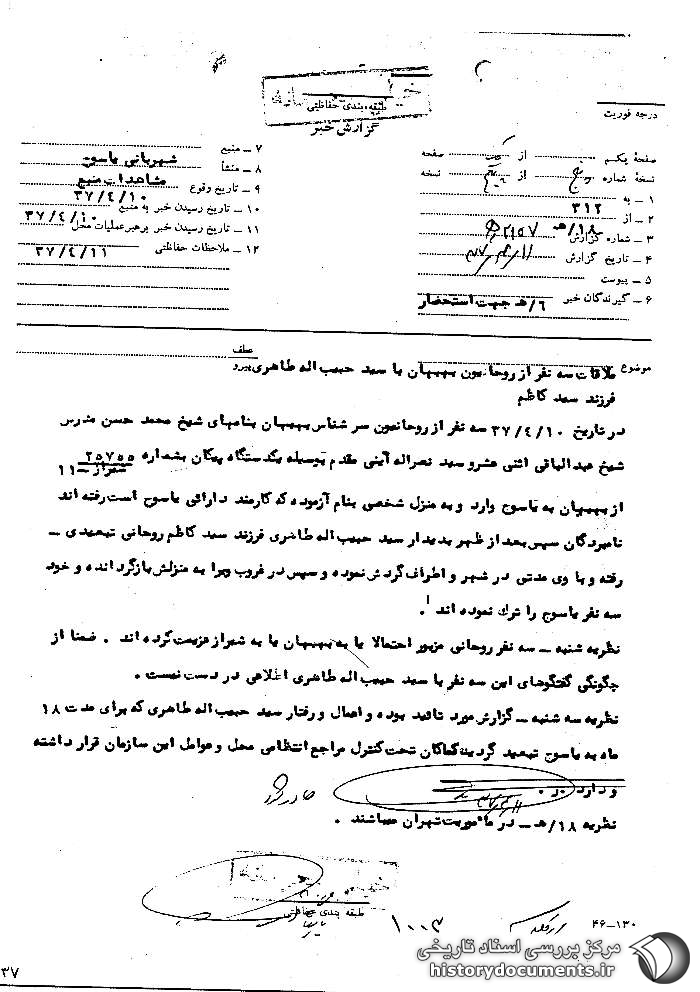 طبقه بندی حفاظتی
گزارش خبر
درجه فوریت
صفحه یکم از صفحه
نسخه شماره از نسخه
۱ ـ به ۳۱۲
۲ ـ از ۱۸/هـ
۳ ـ شماره گزارش
۴ ـ تاریخ گزارش
۵ ـ پیوست
۶ ـ گیرندگان خبر ۶/هـ جهت استحضار
۷ ـ منبع
۸ ـ منشأ شهربانی یاسوج
۹ ـ تاریخ وقوع مشاهدات منبع
۱۰ ـ تاریخ رسیدن خبر به منبع ۳۷/۴/۱۰
۱۱ ـ تاریخ رسیدن خبر برهبر عملیات محل ۳۷/۴/۱۰
۱۲ ـ ملاحظات حفاظتی ۳۷/۴/۱۱
موضوع ملاقات سه نفر از روحانیون بهبهان با سید حبیب اله طاهری
عطف
پیرو
فرزند سید کاظم
در تاریخ ۳۷/۴/۱۰ سه نفر از روحانیون سرشناس بهبهان بنامهای شیخ محمد حسن مدرس
شیخ عبدالباقی اثنی عشر و سید نصراله آیتی مقدم بوسیله یکدستگاه پیکان بشماره ۲۵۷۵۵
شیراز ـ ۱۱
از بهبهان به یاسوج وارد و به منزل شخصی بنام آزموده که کارمند دارائی یاسوج است رفته اند
نامبردگان سپس بعد از ظهر بدیدار سید حبیب اله طاهری فرزند سید کاظم روحانی تبعیدی ـ
رفته و با وی مدتی در شهر و اطراف گردش نموده و سپس در غروب ویرا به منزلش بازگردانده و خود
سه نفر یاسوج را ترک نموده اند .
نظریه شنبه ـ سه نفر روحانی مزبور احتمالا یا به بهبهان یا به شیراز عزیمت کرده اند . ضمنا از
چگونگی گفتگوهای این سه نفر با سید حبیب اله طاهری اطلاعی در دست نیست .
نظریه سه شنبه ـ گزارش مورد تائید بوده و اعمال و رفتار سید حبیب اله طاهری که برای مدت ۱۸
ماه به یاسوج تبعید گردیده کماکان تحت کنترل مراجع انتظامی محل و عوامل این سازمان قرار داشته
و دارد .
نظریه ۱۸/هـ ـ در ماموریت تهران میباشند .
طبقه بندی حفاظتی
۱۰۰۳
۴۶-۱۳۰
۳۷
مرکز بررسی اسناد تاریخی
historydocuments.ir